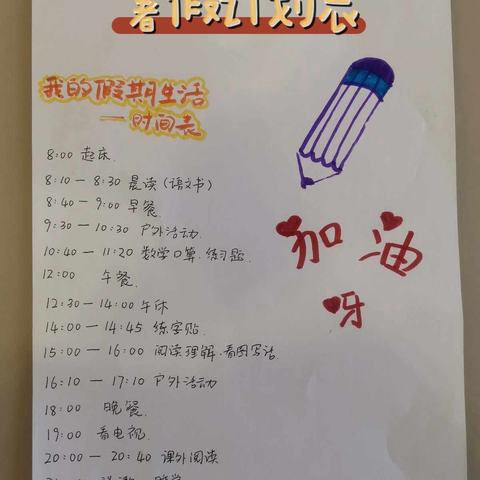 暑假计划表
我的假期生活
一时间表
8:00 起床.
8:10 — 8:30 晨读（语文书）
8:40 — 9:00 早餐.
9:30 — 10:30 户外活动.
10:40 — 11:20 数学口算.练习题.
12:00 午餐.
12:30 — 14:00 午休
14:00 — 14:45 练字贴.
15:00 — 16:00 阅读理解.看图写话.
16:10 — 17:10 户外活动
18:00 晚餐.
19:00 看电视.
20:00 — 20:40 课外阅读
加油
呀